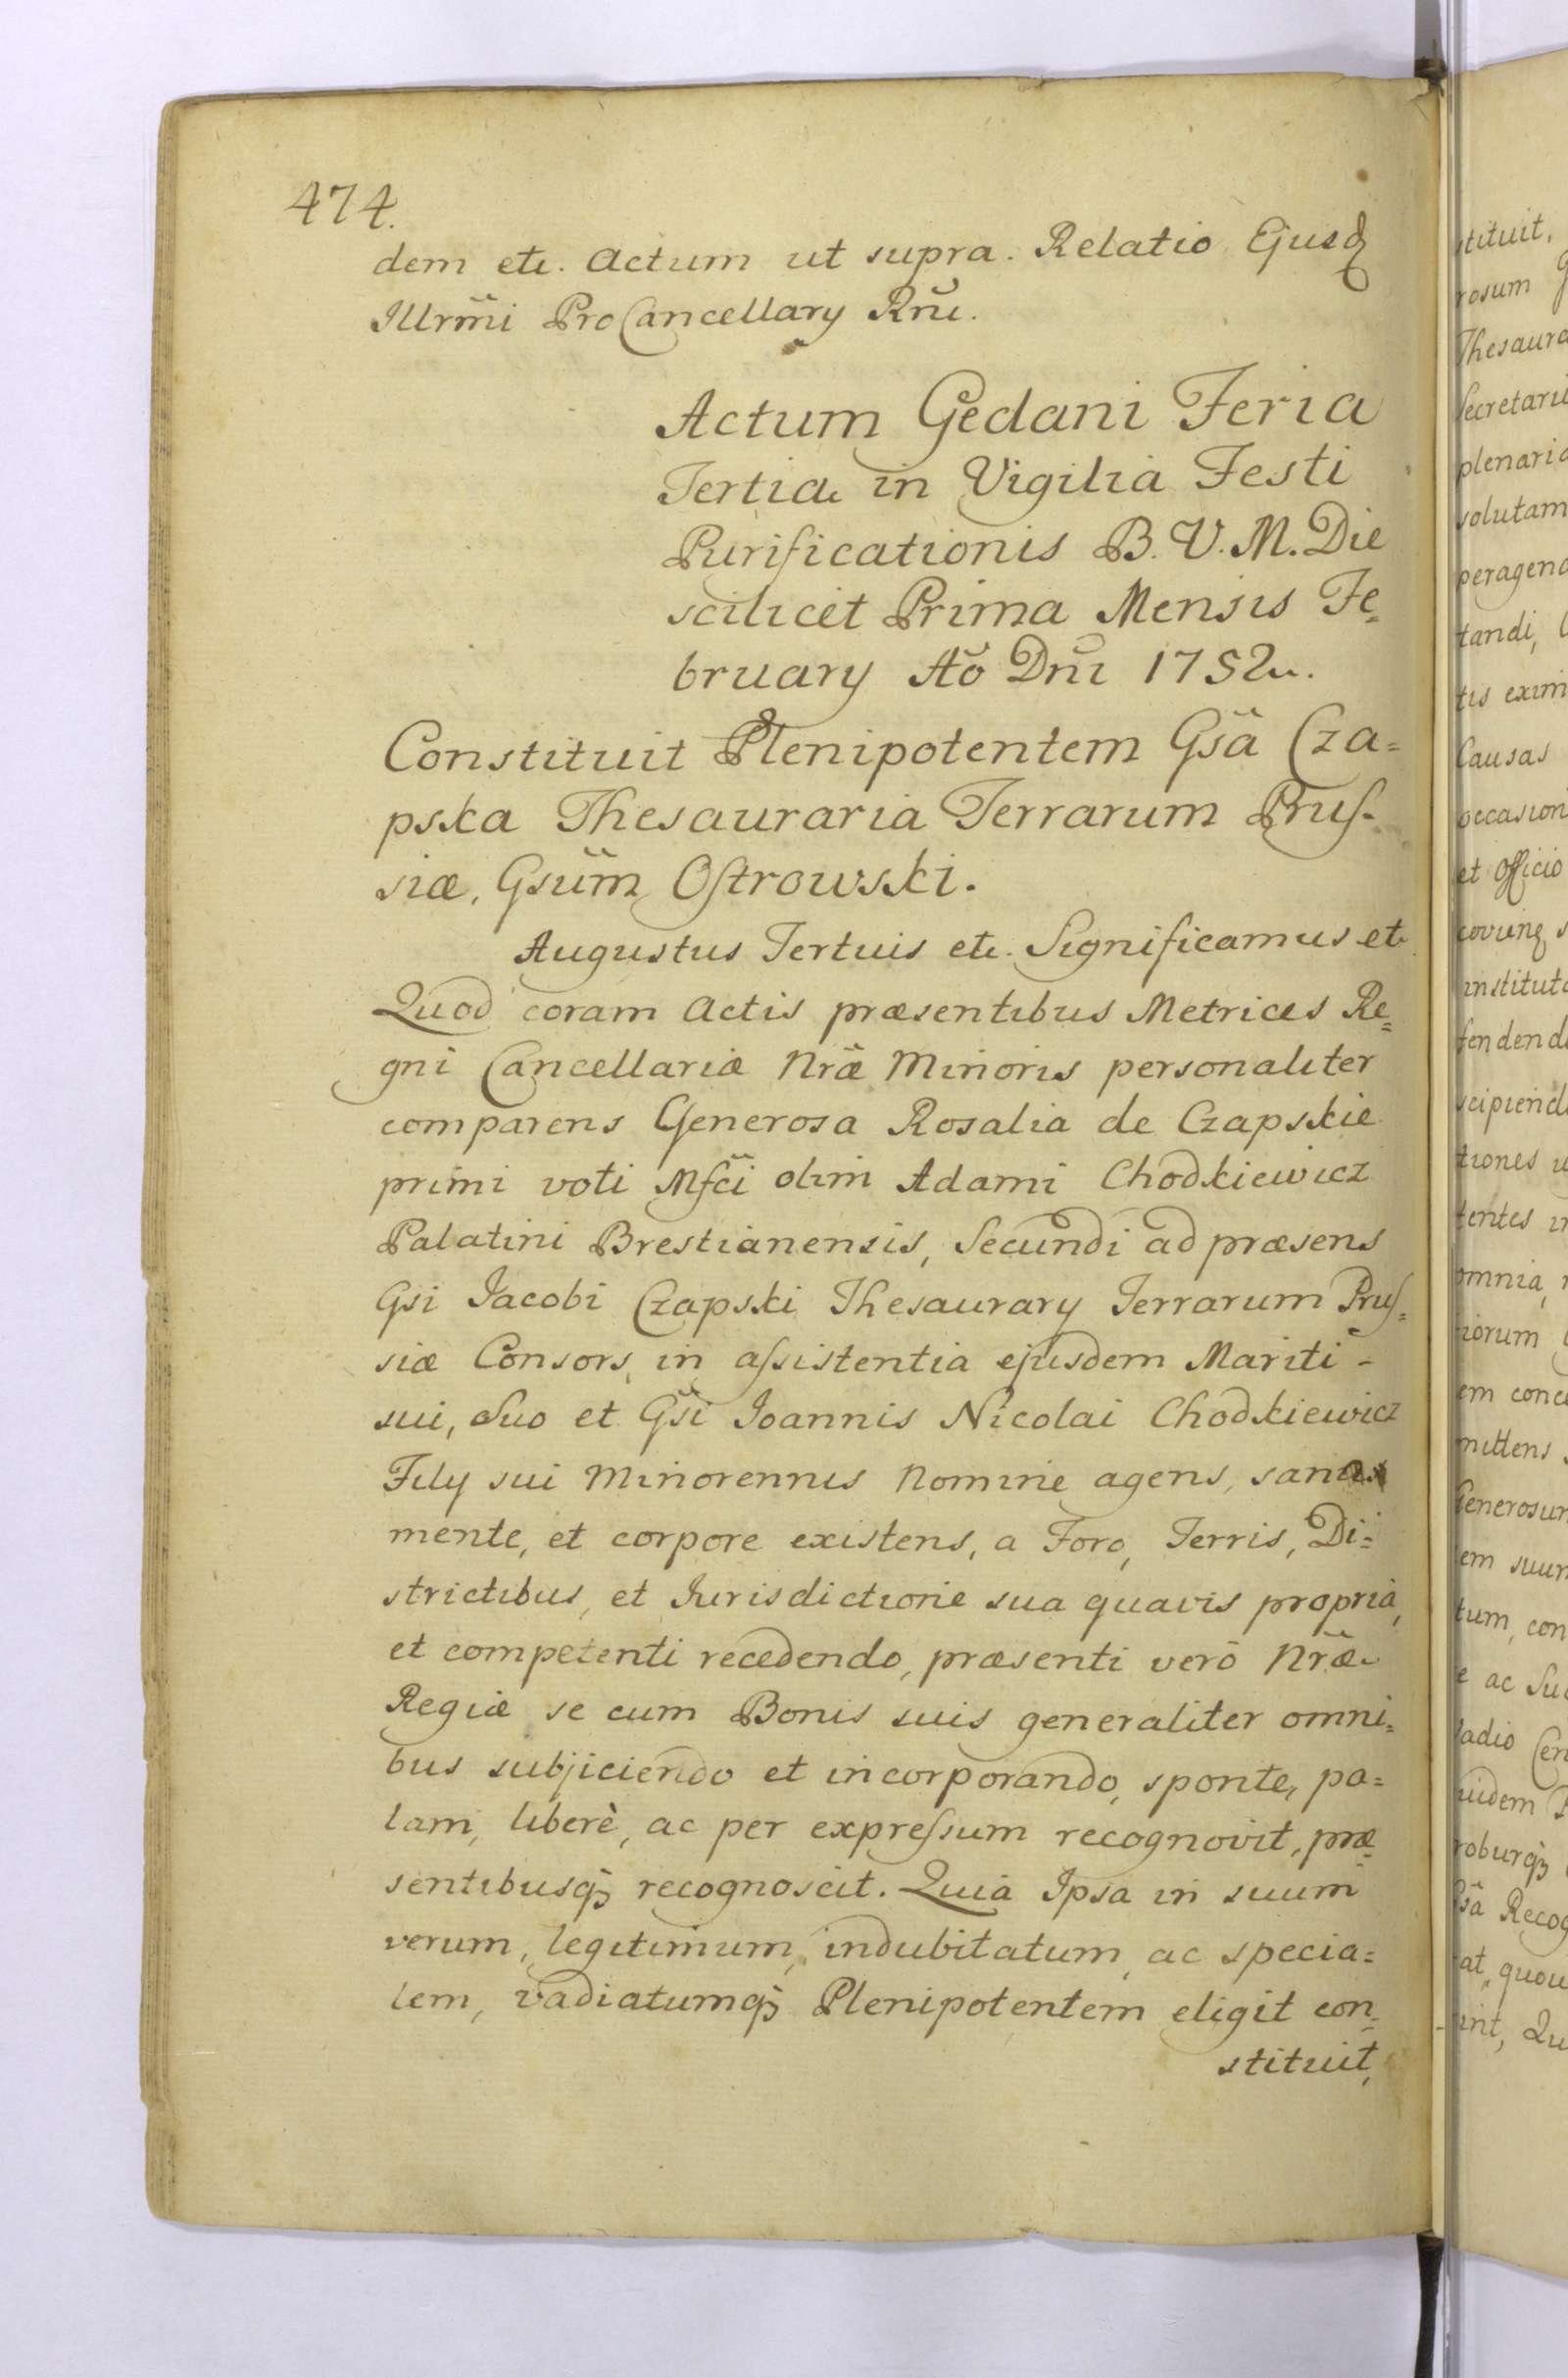 474.
dem etc. Actum ut supra. Relatio Ejusd
Illrm̃i ProCancellary Rñi.
Actum Gedani Feria
Tertia in Vigilia Festi
Purificationis B. V. M. Die
scilicet Prima Mensis Fe=
bruary Aō Dñi 1752.
Constituit Plenipotentem Gsã Cza=
pska Thesauraria Terrarum Prus=
siæ, Gsum̃ Ostrowski.
Augustus Tertuis etc. Significamus etc.
Quod coram Actis præsentibus Metrices Re=
gni Cancellariæ Nræ̃ Minoris personaliter
comparens Generosa Rosalia de Czapskie
primi voti Mfci̇̃ olim Adami Chodkiewicz
Palatini Brestianensis, Secundi ad præsens
Gsi Jacobi Czapski Thesaurary Terrarum Prus=
siæ Consors, in assistentia ejusdem Mariti -
sui, suo et Gs̃i Joannis Nicolai Chodkiewicz
Fily sui Minorennis Nomine agens, sana
mente, et corpore existens, a Foro, Terris, Di=
strictibus, et Jurisdictione sua quavis propria,
et competenti recedendo, præsenti verō Nræ̃
Regiæ se cum Bonis suis generaliter omni=
bus subjiciendo et incorporando, sponte, pa=
lam, liberè, ac per expressum recognovit, præ=
sentibusqȝ recognoscit. Quia Ipsa in suum
verum, legitimum, indubitatum, ac specia=
lem, vadiatumqȝ Plenipotentem eligit con=
stituit,
stituit,
rosum
Thesaura
Secretari
plenari
solutam
peragen
tandi,
tis exim
Causas
occasion
et Officio
institut
fendend
scipiend
tiones
tentes
omnia,
riorum
em conc
mittens
Generosu
em suu
tum, con
e ac Su
ladio Ce
uidem
roburqȝ
Gsã Reco
at, quou
int, Qu